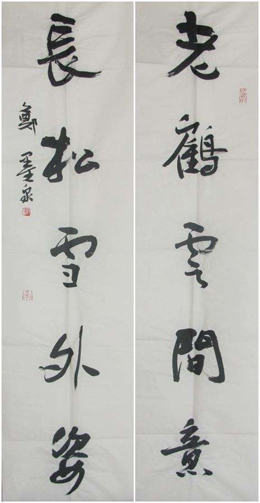 老鶴雲間意
長松雪外姿
鄭墨泉